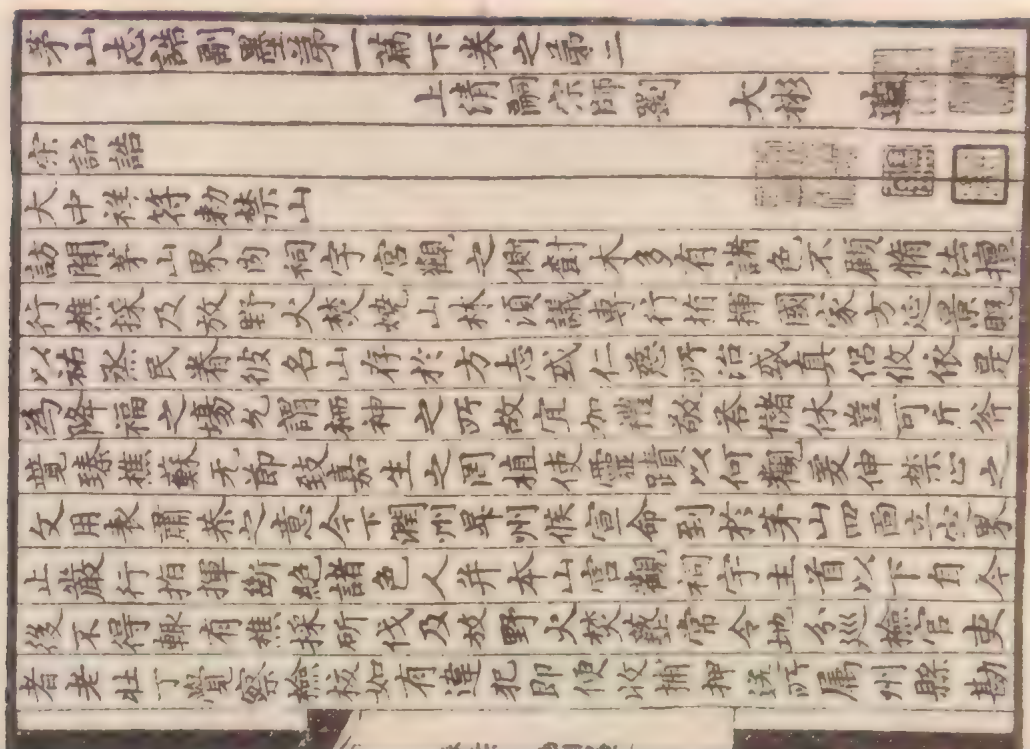 茅山志誥副墨第一篇下卷之第二
上清嗣宗師劉大彬造
宋詔誥
大中祥符勑禁山
訪聞茅山界內祠宇宮觀之側樹木多有諸色不顧條法擅
行樵採及放野火焚燒山林須議專行指揮國家方延景貺
以祐烝民眷彼名山存於方志或仁慈所治或真侶攸依是
為降福之場允謂栖神之所故宜加禮敬荅儲休豈可斤斧
競臻樵蘇无節致嘉生之罔植使靈蹟以何觀爰伸禁止之
文用表肅恭之意今下潤州昇州候宣命到於茅山四面立定界
止嚴行指揮斷絕諸色人并本山宮觀祠宇主首以下自今
後不得輒有樵採斫伐及放野火焚爇常令地分巡檢官吏
耆老壯丁覺察檢校如有違犯即便收捕押送所屬州縣勘